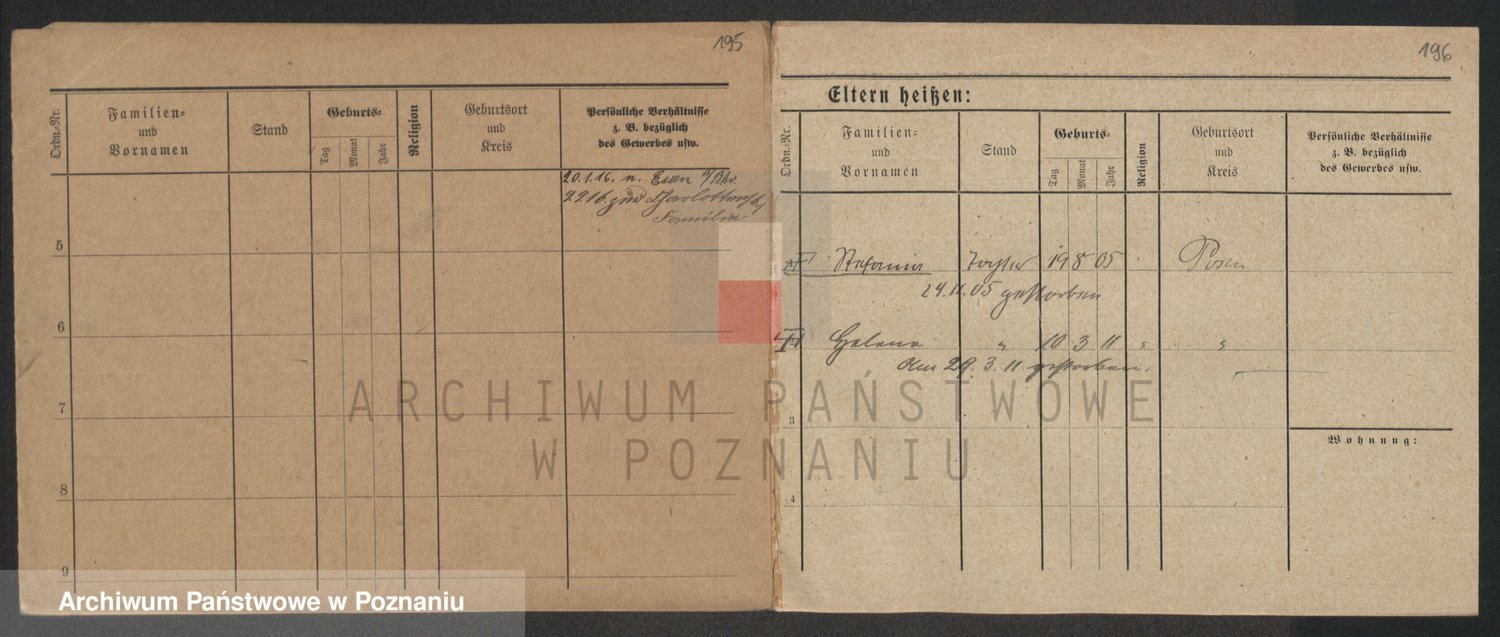 195
Ordn.-Nr.
Familien-
und
Vornamen
Stand
Geburts-
Tag
Monat
Jahr
Religion
Geburtsort
und
Kreis
Persönliche Verhältnisse
z. B. bezüglich
des Gewerbes usw.
20.1.16. n. Essen a/Rhr.
9.2.16. zur
Familie
5
6
7
8
9
196
Eltern heißen:
Ordn.-Nr.
Familien-
und
Vornamen
Stand
Geburts-
Tag
Monat
Jahr
Religion
Geburtsort
und
Kreis
Persönliche Verhältnisse
z. B. bezüglich
des Gewerbes usw.
Stefania Tochter 19 8 05 Posen
24.11.05 gestorben
Helena " 10 3 11 " "
Am 29.3.11 gestorben.
3
4
Wohnung:
ARCHIWUM PAŃSTWOWE
W POZNANIU
Archiwum Państwowe w Poznaniu